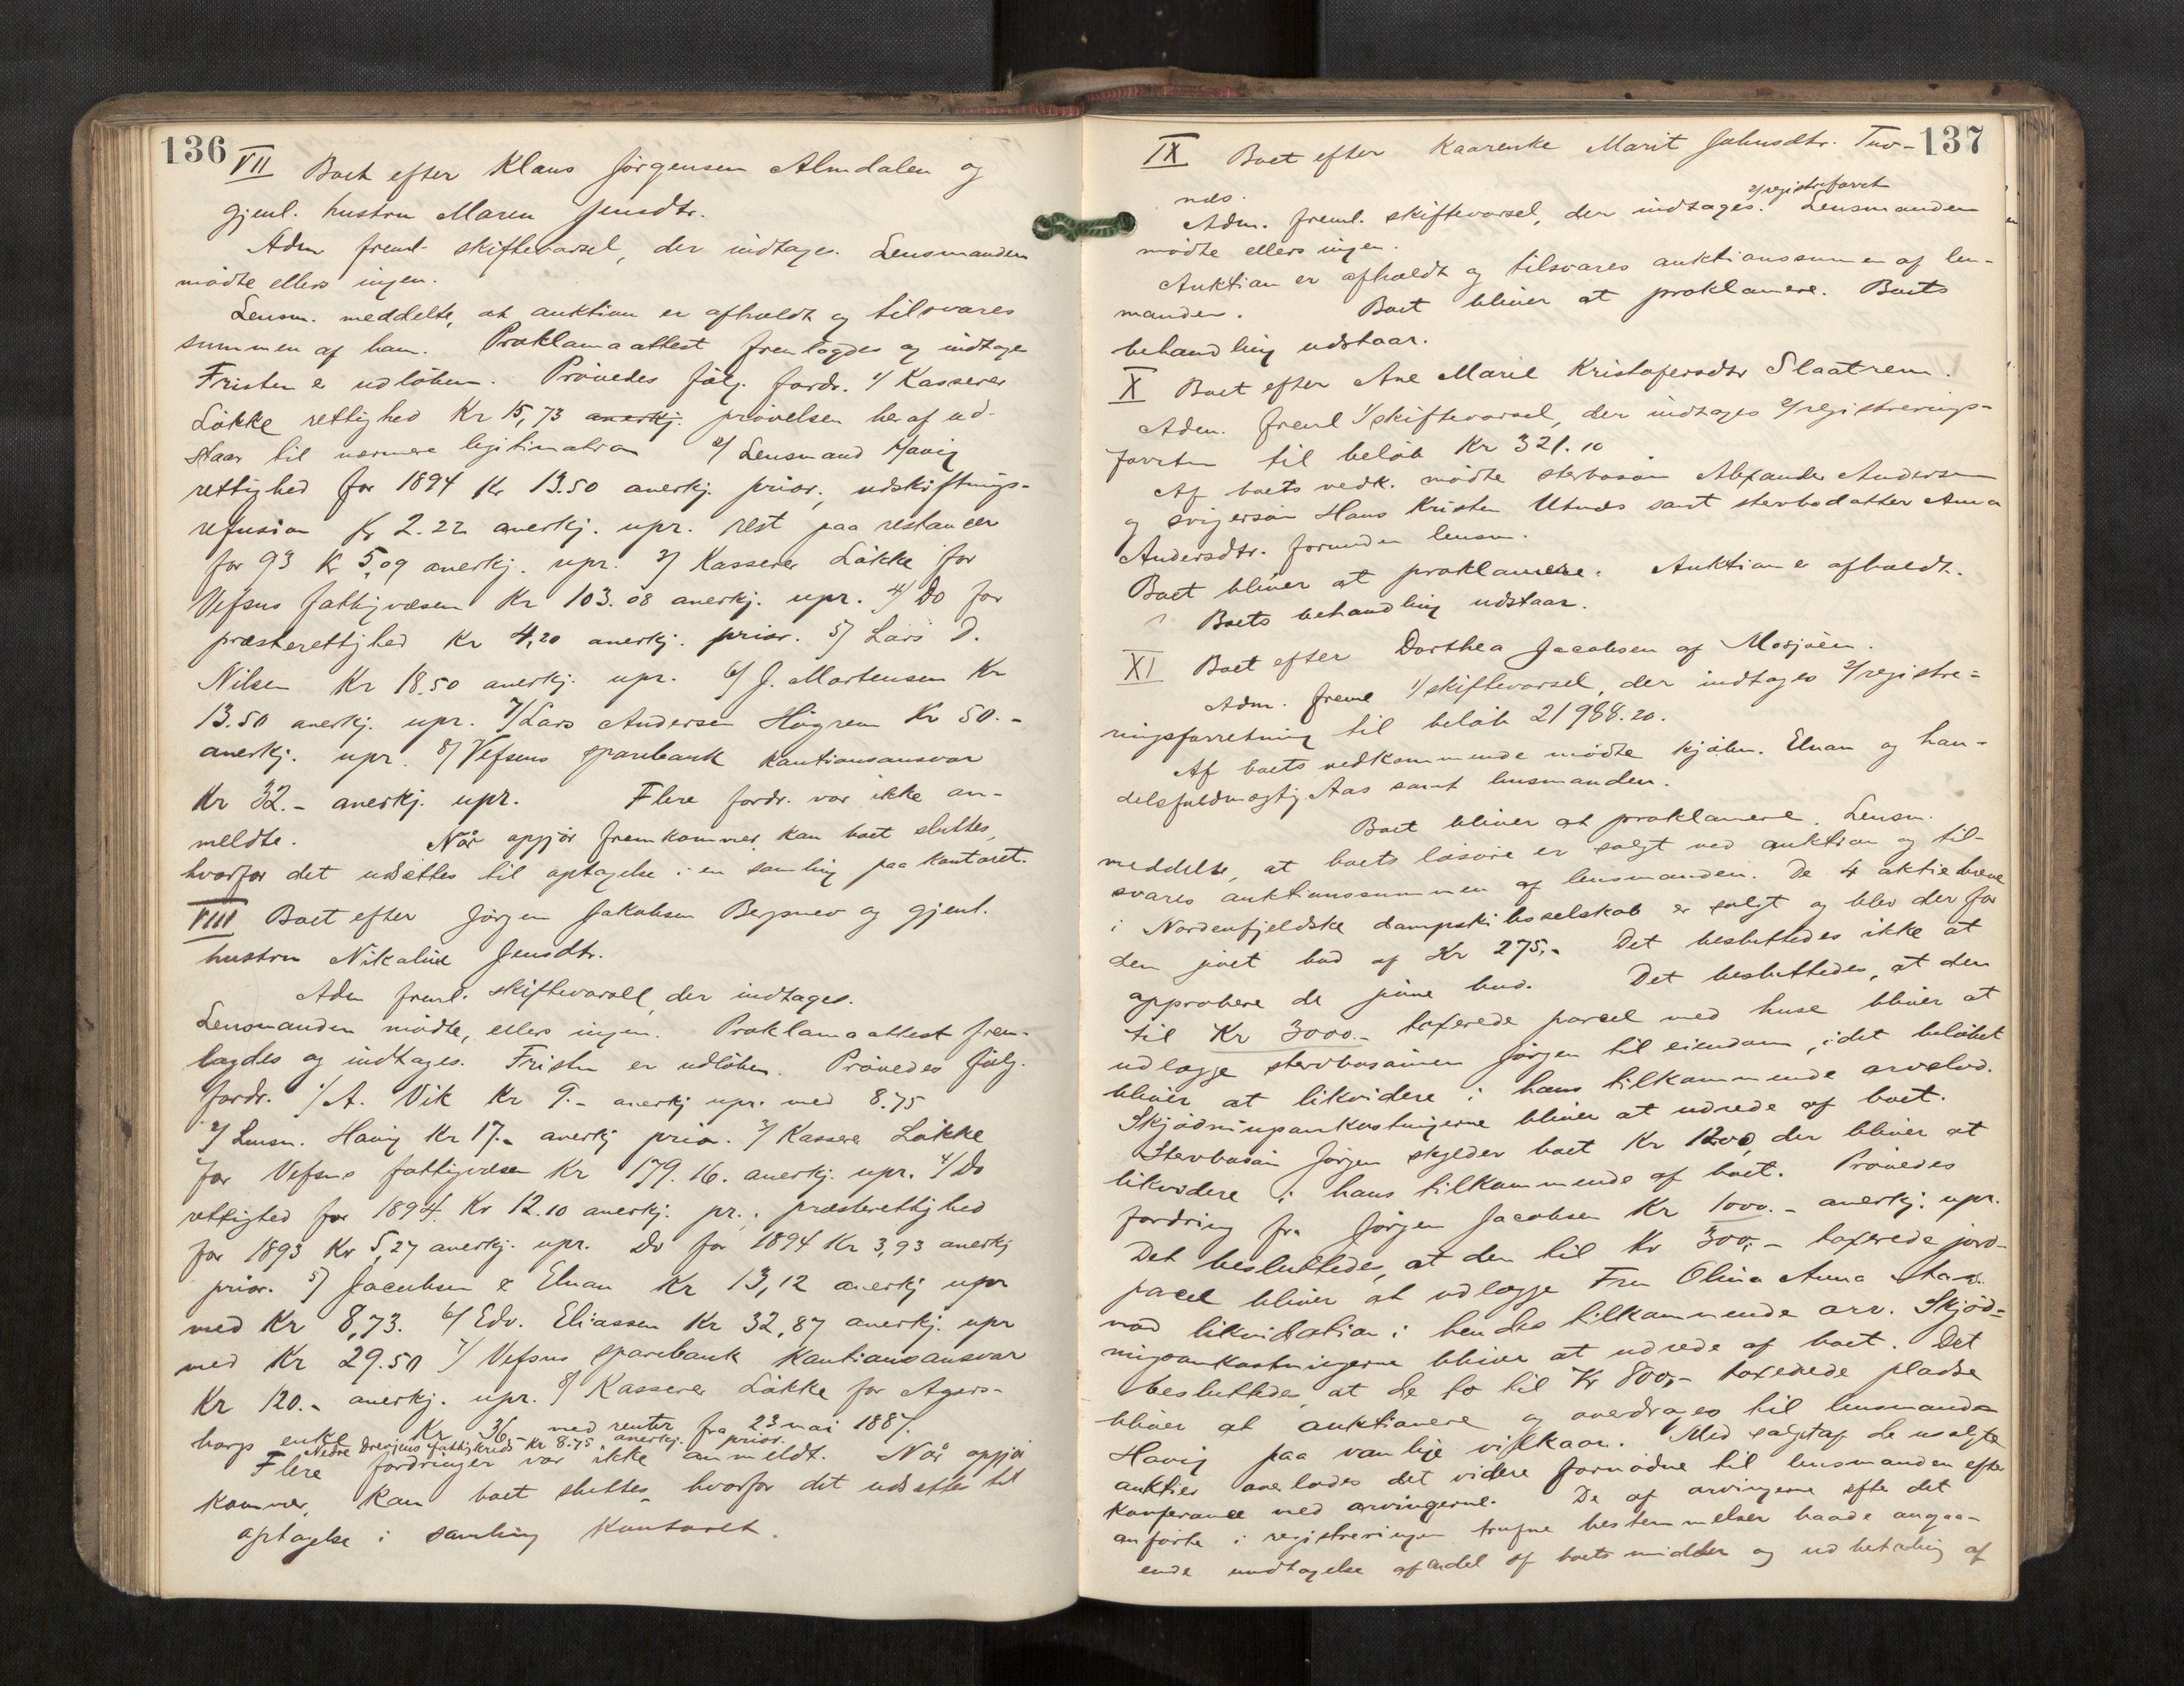 136
VII Boet efter Klaus Jörgensen Almdalen og
gjenl. hustru Maren Jensdtr.
Adm freml. skiftevarsel, der indtages. Lensmanden
mödte ellers ingen.
Lensm. meddelte, at auktion er afholdt og tilsvares
summen af ham. Proklamaattest fremlagdes og indtages
Fristen er udlöben. Prövedes fölg. fordr. 1/ Kasserer
Lökke rettighed Kr 15,73 anerkj. prövelsen heraf ud-
staar til nærmere legitimation 2/ Lensmand Havig
rettighed for 1894 Kr 13.50 anerkj. prior., udskiftnings-
refusion Kr 2.22 anerkj. upr. rest paa restancer
for 93 Kr 5,09 anerkj. upr. 3/ Kasserer Lökke for
Vefsns fattigvæsen Kr 103.08 anerkj. upr. 4/ Do for
præsterettighed Kr 4,20 anerkj. prior. 5/ Lars D.
Nilsen Kr 18.50 anerkj. upr. 6/ J. Mortensen Kr
13.50 anerkj. upr. 7/ Lars Andersen Högrem Kr 50.-
anerkj. upr. 8/ Vefsens sparebank kautionsansvar
Kr 32.- anerkj. upr. Flere fordr. var ikke an-
meldte. Når opgjör fremkommer kan boet sluttes,
hvorfor det udsættes til optagelse i en samling paa kontoret.
VIII Boet efter Jörgen Jakobsen og gjenl.
hustru Nikoline Jensdtr.
Adm freml. skiftevarsel, der indtages.
Lensmanden mödte, ellers ingen. Proklamaattest frem-
lagdes og indtages. Fristen er udlöben. Prövedes fölg.
fordr. 1/ A. Vik Kr 9.- anerkj upr. med 8.75
2/ Lensm. Havig Kr 17.- anerkj prior. 3/ Kasserer Lökke
for Vefsns fattigvæsen Kr 179.16. anerkj. upr. 4/ Do
rettighed for 1894. Kr 12.10 anerkj. pr., præsterettighed
for 1893 Kr 5,27 anerkj. upr. Do for 1894 Kr 3,93 anerkj
prior. 5/ Jacobsen & Elnan Kr 13,12 anerkj upr
med Kr 8,73. 6/ Edv. Eliassen Kr 32,87 anerkj. upr
med Kr 29.50 7/ Vefsns sparebank Kautionsansvar
Kr 120.- anerkj. upr. 8/ Kasserer Lökke for Agers-
borgs enke Kr 36,- med renter fra 23 mai 1887.
Nedre Drevjens fattigkreds Kr 8.75, anerkj. prior.
Flere fordringer var ikke anmeldt. Når opgjör
kommer, kan boet sluttes, hvorfor det udsættes til
optagelse i samling kontoret.
137
IX Boet efter Kaarenke Marit Johnsdtr. Tuv-
næs.
2/ registreforret
Adm. freml. skiftevarsel, der indtages. Lensmanden
mödte ellers ingen.
Auktion er afholdt og tilsvares auktionssummen af len-
manden. Boet bliver at proklamere. Boets
behandling udstaar.
X Boet efter Ane Marie Kristofersdtr Slaatrem.
Adm. freml 1/ skiftevarsel, der indtages 2/ registrerings-
forretn til belöb Kr 321.10
Af boets vedk. mödte sterbosön Alexander Andersen
og svigersön Hans Kristen Utnæs samt sterbodatter Anna
Andersdtr. foruden lensm.
Boet bliver at proklamere. Auktion er afholdt.
Boets behandling udstaar.
XI Boet efter Dorthea Jacobsen af Mosjöen.
Adm. freml 1/ skiftevarsel, der indtages 2/ registre-
ringsforretning til belöb 21988.20.
Af boets vedkommende mödte kjöbm. Elnan og han-
delsfuldmægtig Aas samt lensmanden.
Boet bliver at proklamere. Lensm.
meddelte, at boets lösöre er solgt ved auktion og til-
svares auktionssummen af lensmanden. De 4 aktiebreve
i Nordenfjeldske dampskibsselskab er solgt og blev der for
dem givet bud af Kr 275,- Det besluttedes ikke at
approbere de givne bud. Det besluttedes, at den
til Kr 3000.- taxerede parcel med huse bliver at
udlægge sterbosönnen Jörgen til eiendom, idet belöbet
bliver at likvidere i hans tilkommende arvelod.
Skjödningsomkostningerne bliver at udrede af boet.
Sterbosön Jörgen skylder boet Kr 1200, der bliver at
likvidere i hans tilkommende af boet. Prövedes
fordring fra Jörgen Jacobsen Kr 1000.- anerkj. upr.
Det besluttedes, at den til Kr 300,- taxerede jord-
parcel bliver at udlægge Fru Olina Anna Aas.
mod likvidation i hendes tilkommende arv. Skjöd-
ningsomkostningerne bliver at udrede af boet. Det
besluttedes, at de to til Kr 800,- taxerede pladse
bliver at auktionere og overdrages til lensmand
Havig paa vanlige vilkaar. Med salget af de usolgte
aktier overlodes det videre fornödne til lensmanden efter
konferance med arvingerne. De af arvingerne efter det
anförte i registreringen trufne bestemmelser baade angaa-
ende undtagelse af endel af boets midler og udbetaling af